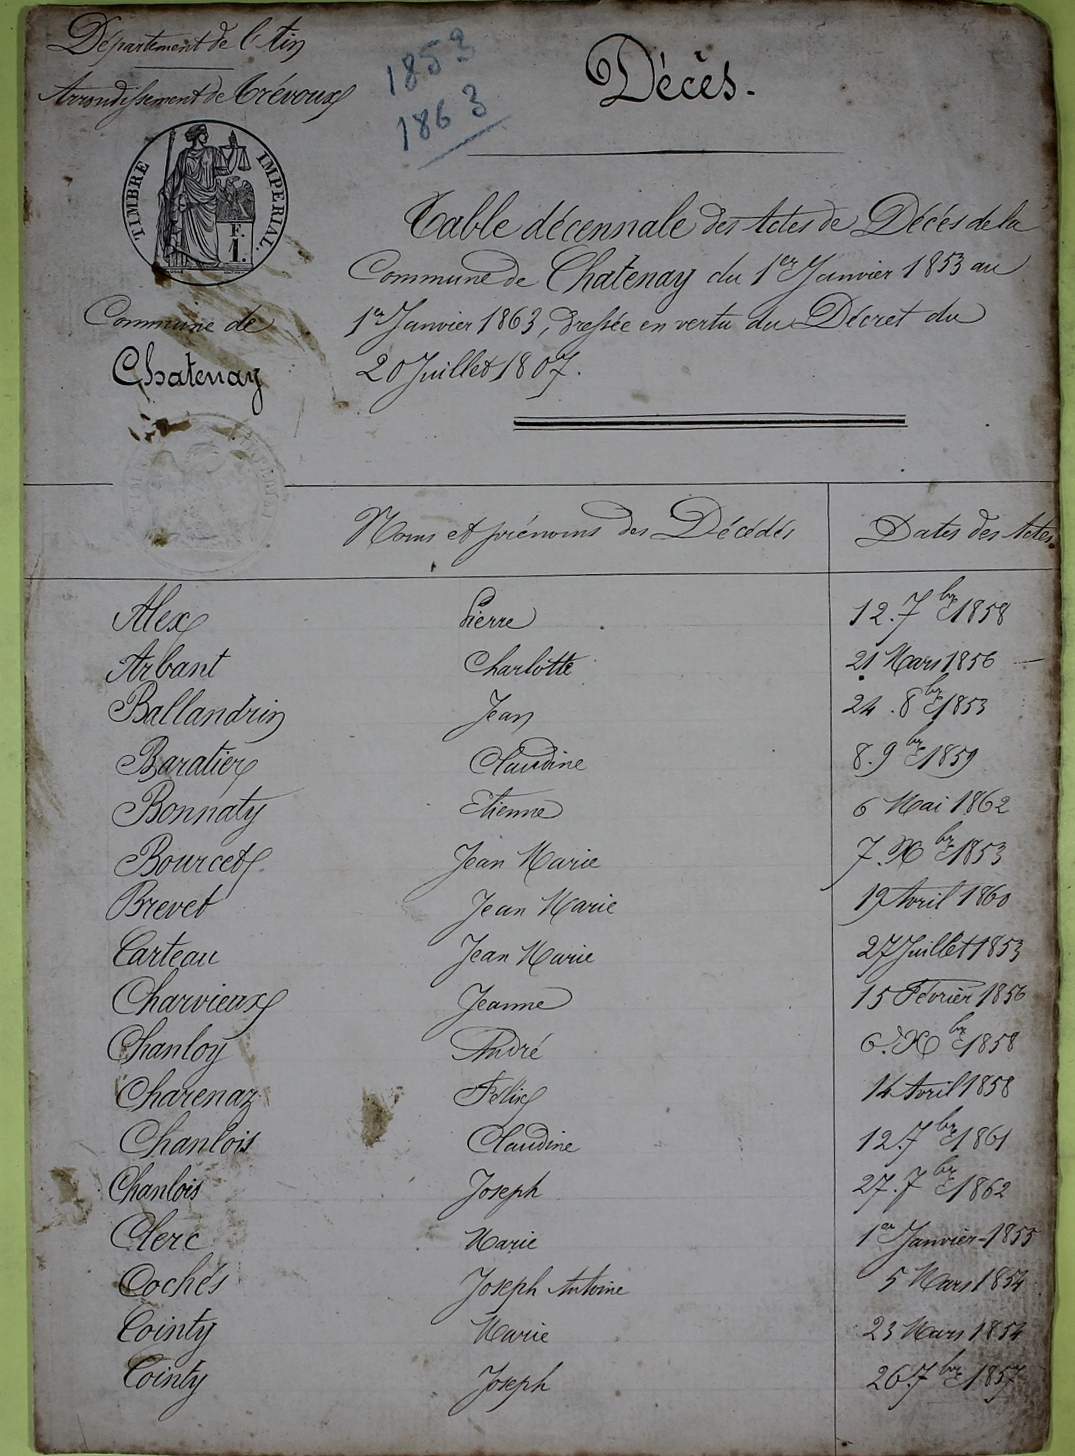 Département de l'Ain
Arrondissement de Trévoux
1853
1863
Décès.
TIMBRE IMPERIAL
F.
1.
Commune de
Chatenay
Table décennale des Actes de Décès de la
Commune de Chatenay du 1er Janvier 1853 au
1er Janvier 1863, dressée en vertu du Décret du
20 Juillet 1807.
Noms et prénoms des Décédés Dates des Actes
Alex Pierre 12. 7bre 1858
Arbant Charlotte 21 Mars 1856
Ballandrin Jean 24. 8bre 1853
Baratier Claudine 8. 9bre 1859
Bonnaty Etienne 6 Mai 1862
Bourcet Jean Marie 7. Xbre 1853
Brevet Jean Marie 19 Avril 1860
Carteau Jean Marie 27 Juillet 1853
Charvieux Jeanne 15 Février 1856
Chanloy André 6. Xbre 1858
Charenaz Félix 14 Avril 1858
Chanlois Claudine 12. 7bre 1861
Chanlois Joseph 27. 7bre 1862
Clerc Marie 1er Janvier 1855
Cochés Joseph Antoine 5 Mars 1854
Cointy Marie 23 Mars 1854
Cointy Joseph 26. 7bre 1857